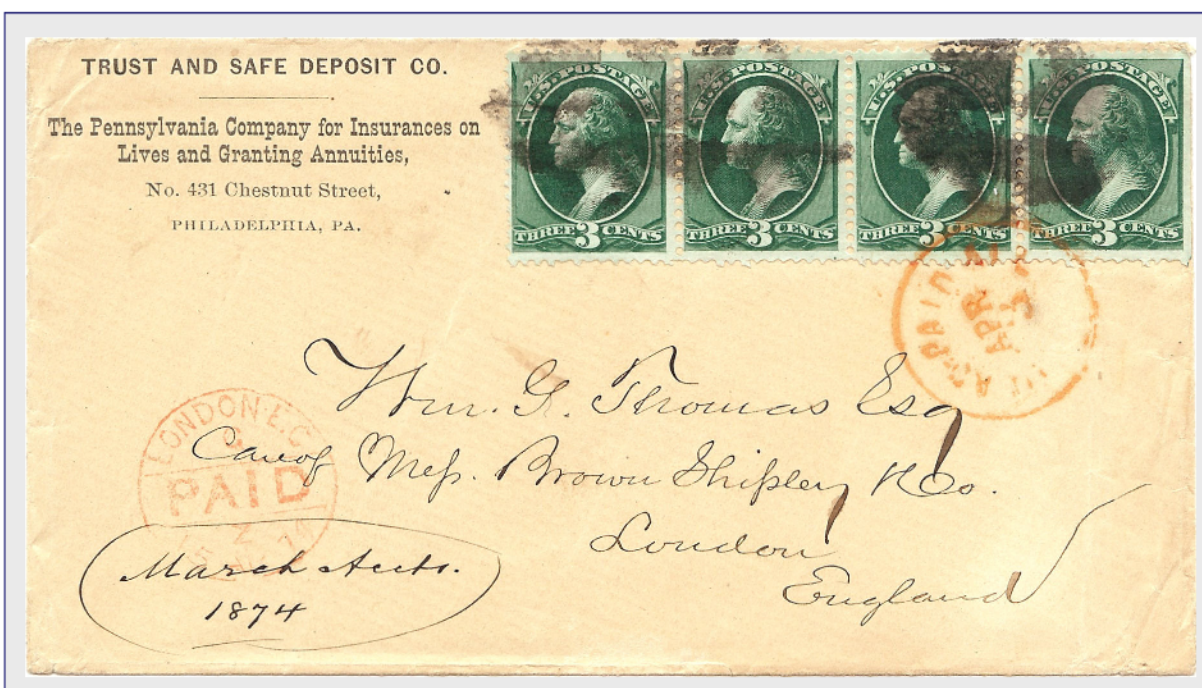 TRUST AND SAFE DEPOSIT CO.
The Pennsylvania Company for Insurances on
Lives and Granting Annuities,
No. 431 Chestnut Street,
PHILADELPHIA, PA.
U.S. POSTAGE
THREE 3 CENTS
U.S. POSTAGE
THREE 3 CENTS
U.S. POSTAGE
THREE 3 CENTS
U.S. POSTAGE
THREE 3 CENTS
PAID
APR
Wm. G. Thomas Esq
Care of Mess. Brown Shipley & Co.
London
England
LONDON E.C.
PAID
March Accts.
1874